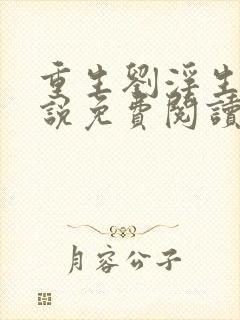 重生劉淫生
說免費閱讀
月容公子